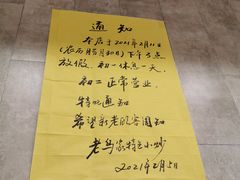 通知
本店于2021年2月11日
(农历腊月30日)下午5点
放假 初一休息一天,
初二正常营业,
特此通知
希望新老顾客周知
老马家特色小炒
2021年2月5日